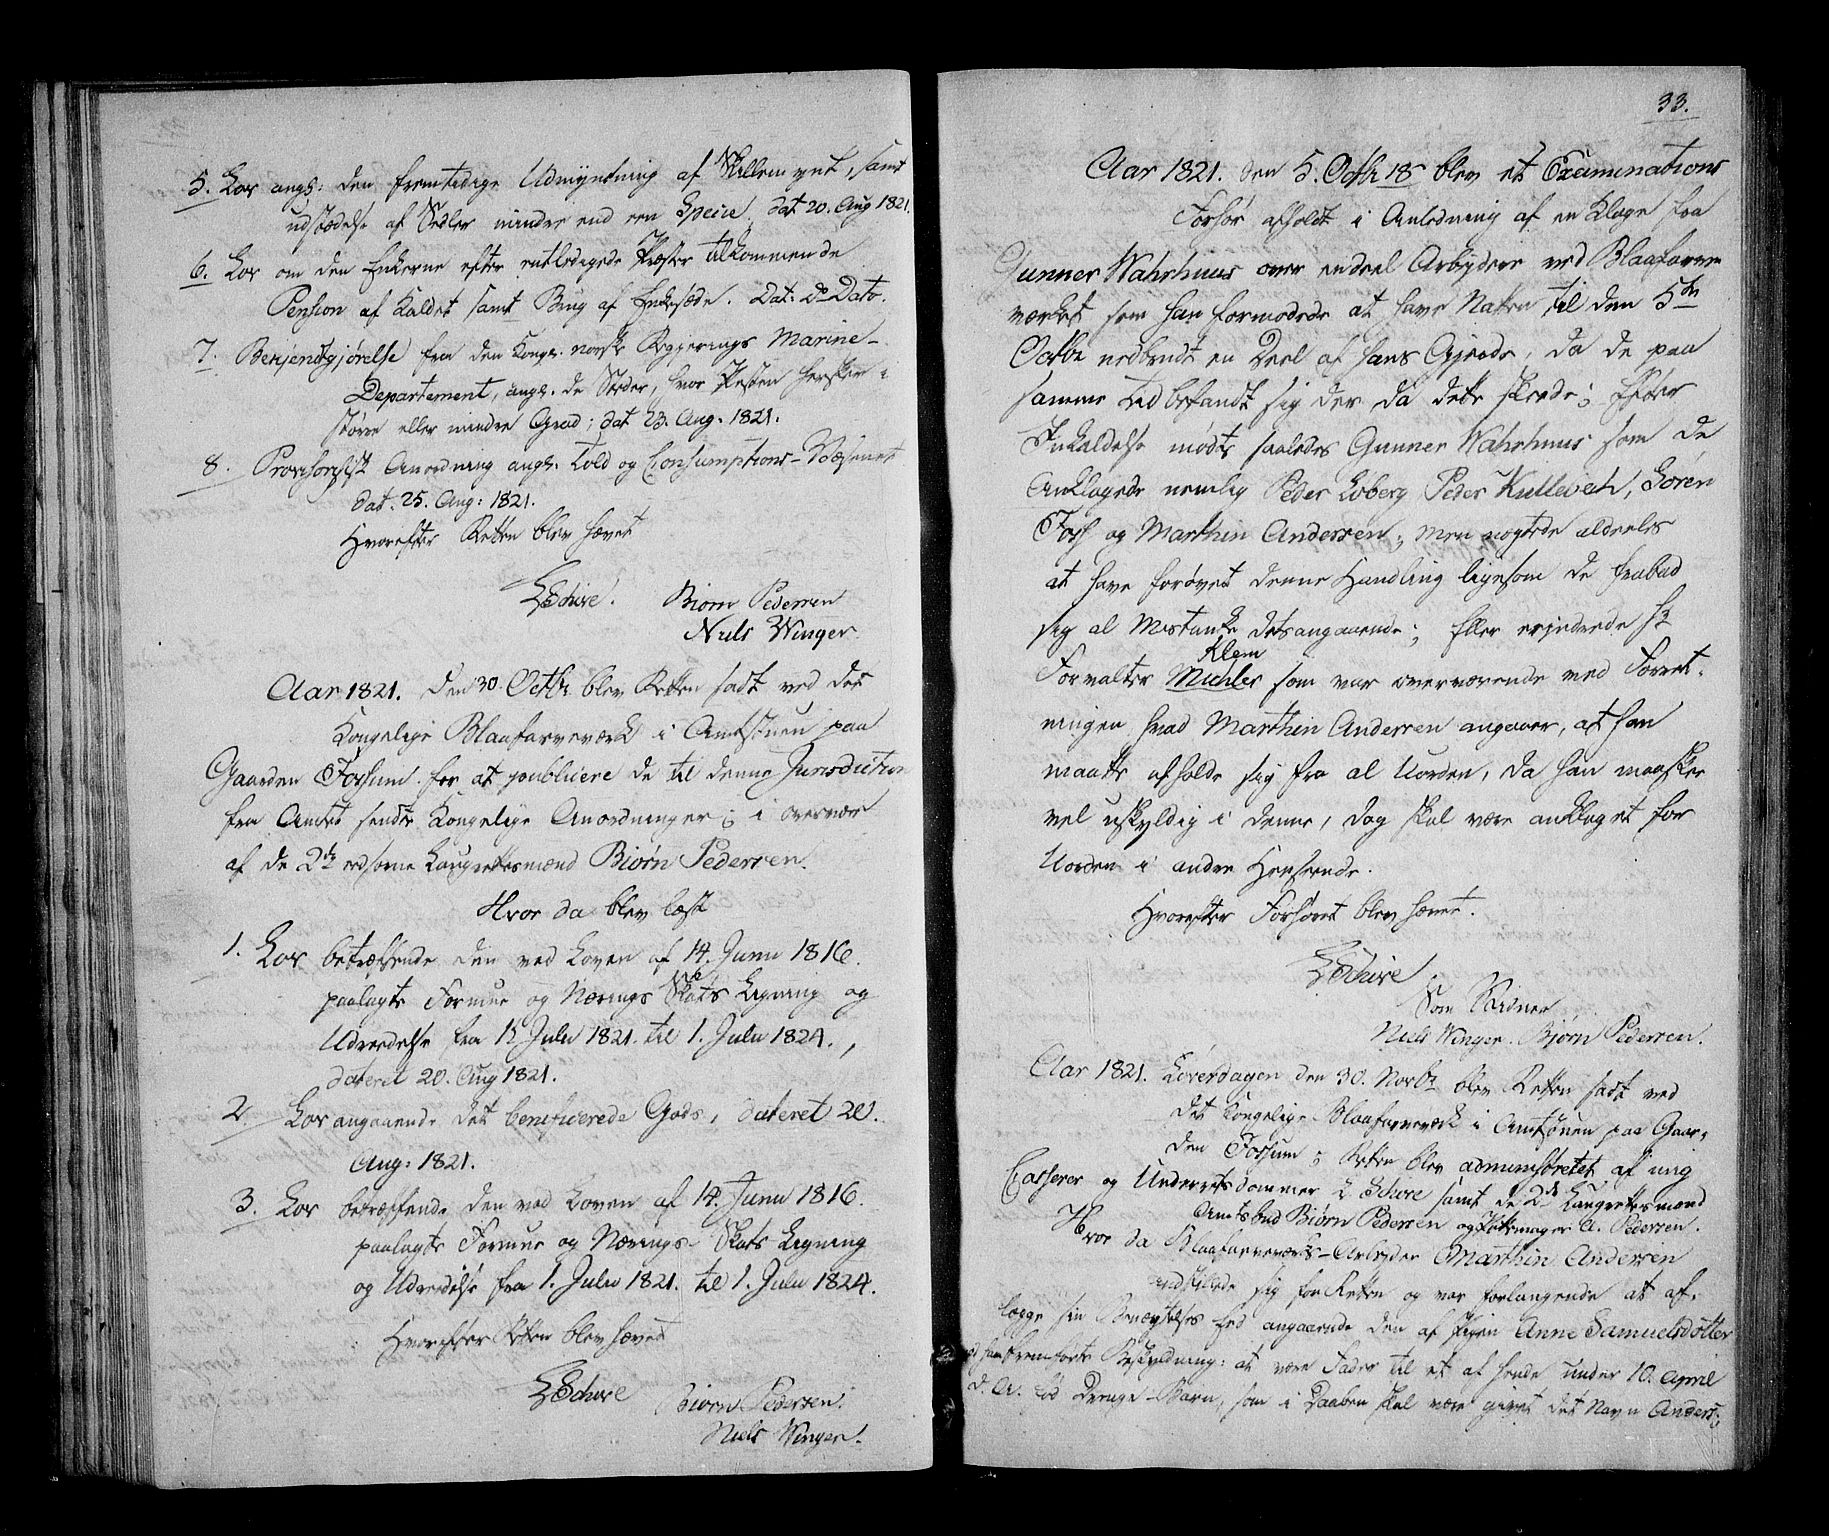 5. Lov angl: den fremtidige Udmyntning af Skillemynt, samt
udstædelse af Sedler mindre end een Specie. dat 20. Aug 1821.
6. Lov om den Enkerne efter entledigede Præster tilkommende
Pension af Kaldet samt Brug af Enkesæde. Dat. do Dato.
7. Bekjendtgjørelse fra den Kongl. norske Regjerings Marine-
Departement, angl. de Steder, hvor Pesten hersker i
større eller mindre Grad; dat 23. Aug. 1821.
8. Provisorisk Anordning angl. Told og Consumptions-Væsenet
dat. 25. Aug: 1821.
Hvorefter Retten blev hævet
LSchive. Biørn Pedersen
Niels Winger
Aar 1821. den 30. Octbr blev Retten sadt ved det
Kongelige Blaafarveværk i Amtstuen paa
Gaarden Fossum for at publicere de til denne Jurisdiction
fra Amtet sendte Kongelige Anordninger; i overvær
af de 2de edsorne Laugrettesmænd Biørn Pedersen.
Hvor da blev læst
1. Lov betreffende den ved Loven af 14. Junii 1816.
paalagte Formue og Nærings Skats Ligning og
Udredelse fra 1 Julii 1821. til 1. Julii 1824.,
dateret 20. Aug 1821.
2. Lov angaaende det beneficerede Gods, dateret 20.
Aug: 1821.
3. Lov betreffende den ved Loven af 14. Junii 1816.
paalagte Formue og Nærings- Skats Ligning
og Udredelse fra 1. Julii 1821. til 1. Julii 1824.
Hvorefter Retten blev hævet
LSchive Biørn Pedersen.
Niels Winger.
33.
Aar 1821. den 5. Octbr 18 blev et Examinations
Forhør afholdt i Anledning af en Klage fra
Gunner Wahrhuus over endeel Arbeydere ved Blaafarve
værket som han formodede at have Natten til den 5te
Octbr nedbrudt en Deel af hans Gjerde, da de paa
samme Tid befandt sig der da dette skeede; Efter
Indkaldelse mødte saaledes Gunner Wahrhuus som de
Anklagede nemlig Peder Loberg Peder Kulleveh, Søren
Foss og Marthin Andersen; men nægtede aldeeles
at have forøvet denne Handling ligesom de frabad
sig al Mistanke detsangaaende; Eller erindrede Hr
Klem
Forvalter Michler som var overværende ved Forret-
ningen hvad Marthin Andersen angaaer, at han
maatte afholde sig fra al Uorden, da han maaskee
vel uskyldig i denne, dog skal være anklaget for
Uorden i andre Henseende.
Hvorefter Forhøret blev hævet.
LSchive
Som Vidner
Niels Winger. Bjørn Pedersen.
Aar 1821. Løverdagen den 30. Novbr blev Retten sadt ved
det Kongelige Blaafarveværk i Amtstuen paa Gaar-
den Fossum; Retten blev administreret af mig
Casserer og Underretsdommer L Schive samt de 2de Laugrettesmænd
Amtsbud Biørn Pedersen og A. Pedersen.
Hvor da Blaafarveværks-Arbeyder Marthin Andersen
indstillede sig for Retten og var forlangende at af-
lægge sin Benægtelses Eed angaaende den af Pigen Anne Samuelsdotter
ham fremførte Beskyldning: at være Fader til et af hende under 10. April
d. A. fød Drenge-Barn, som i Daaben skal være givet det Navn Anders;